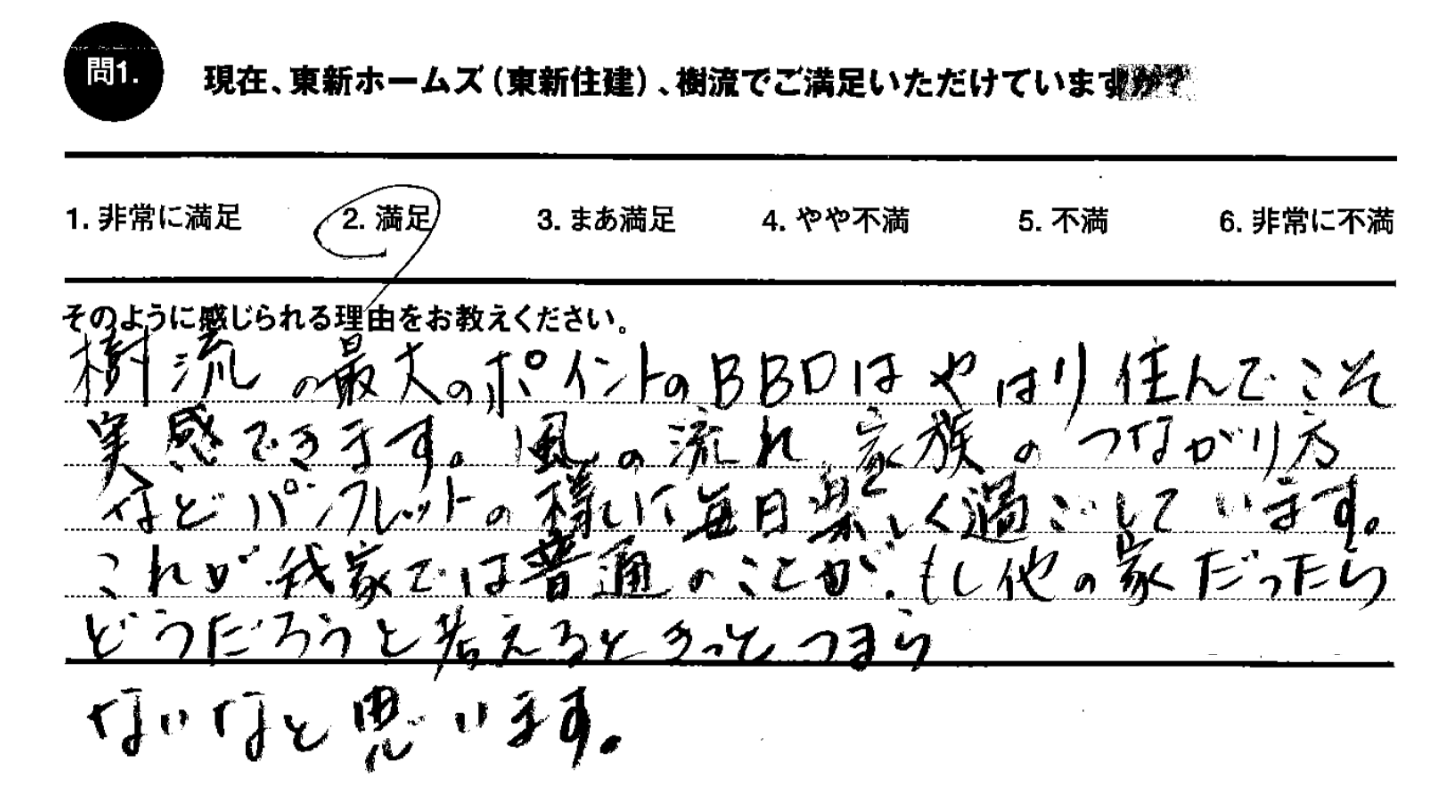 問1.
現在、東新ホームズ（東新住建）、樹流でご満足いただけていますか？
1. 非常に満足 2. 満足 3. まあ満足 4. やや不満 5. 不満 6. 非常に不満
そのように感じられる理由をお教えください。
樹流の最大のポイントのBBDはやはり住んでこそ
実感できます。風の流れ 家族のつながり方
などパンフレットの様に毎日楽しく過ごしています。
これが我家では普通のことが、もし他の家だったら
どうだろうと考えるときっとつまら
ないなと思います。